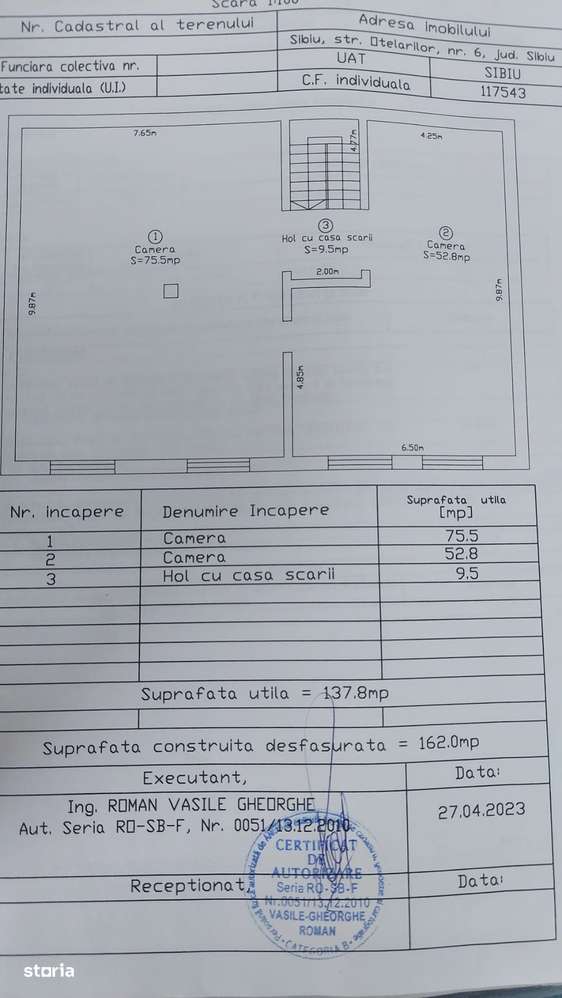 Scara 1:100
Nr. Cadastral al terenului
Adresa imobilului
Sibiu, str. Otelarilor, nr. 6, jud. Sibiu
Funciara colectiva nr.
UAT
SIBIU
tate individuala (U.I.)
C.F. individuala
117543
7.65m
4.77m
4.25m
1
Camera
S=75.5mp
3
Hol cu casa scarii
S=9.5mp
2
Camera
S=52.8mp
2.00m
9.87m
9.87m
4.85m
6.50m
Nr. incapere
Denumire Incapere
Suprafata utila
[mp]
1 Camera 75.5
2 Camera 52.8
3 Hol cu casa scarii 9.5
Suprafata utila = 137.8mp
Suprafata construita desfasurata = 162.0mp
Executant,
Data:
Ing. ROMAN VASILE GHEORGHE
Aut. Seria RO-SB-F, Nr. 0051/13.12.2010
27.04.2023
CERTIFICAT
DE
AUTORIZARE
Seria RO-SB-F
Nr.0051/13.12.2010
VASILE-GHEORGHE
ROMAN
CATEGORIA B
Receptionat,
Data:
storia